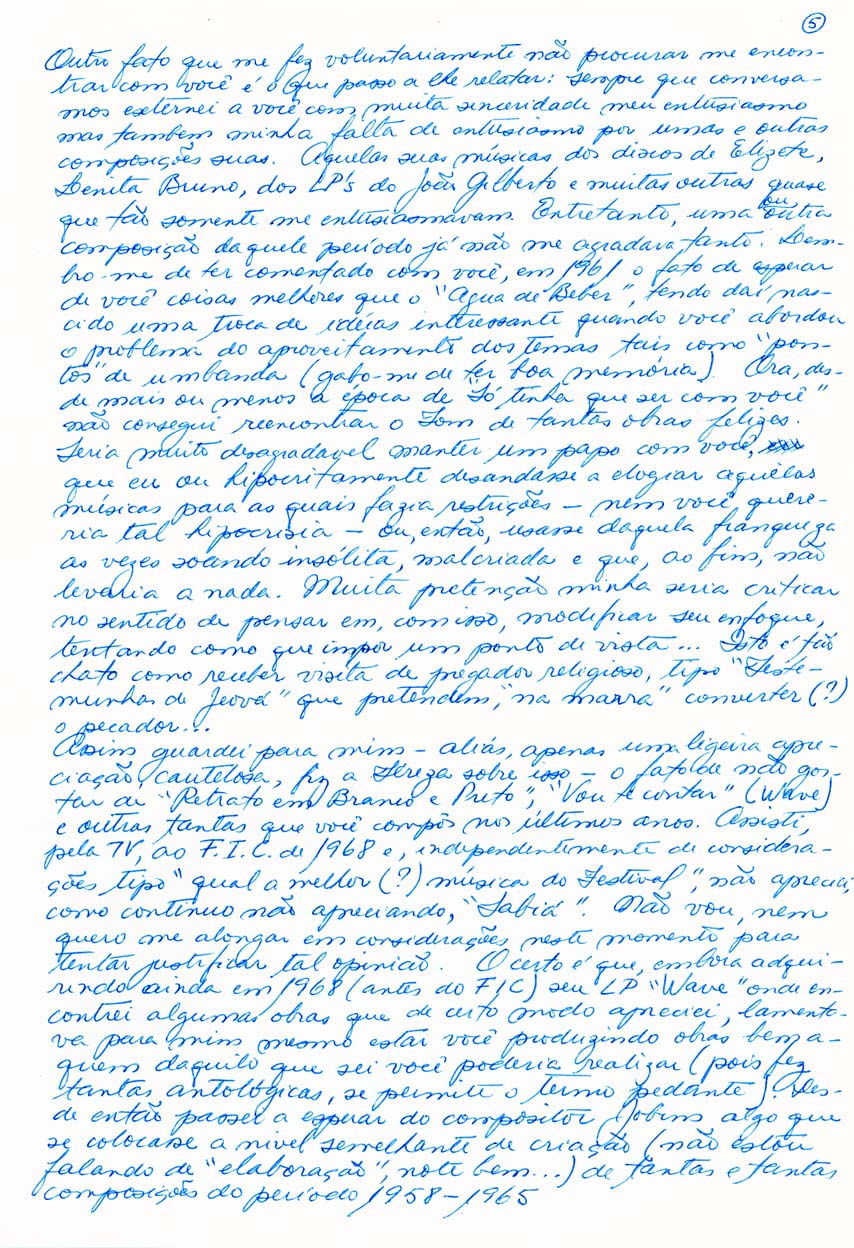 5
Outro fato que me fez voluntariamente não procurar me encon-
trar com você é o que passo a lhe relatar: sempre que conversa-
mos externei a você com muita sinceridade meu entusiasmo
mas tambem minha falta de entusiasmo por umas e outras
composições suas. Aquelas suas músicas dos discos de Elizete,
Lenita Bruno, dos LP's do João Gilberto e muitas outras quase
que tão somente me entusiasmavam. Entretanto, uma ou outra
composição daquele período já não me agradava tanto. Lem-
bro-me de ter comentado com você, em 1961 o fato de esperar
de você coisas melhores que o "Agua de Beber", tendo daí nas-
cido uma troca de idéias interessante quando você abordou
o problema do aproveitamento dos temas tais como "pon-
tos" de umbanda (gabo-me de ter boa memória). Ora, des-
de mais ou menos a época de "Só tinha que ser com você"
não consegui reencontrar o Tom de tantas obras felizes.
Seria muito desagradavel manter um papo com você,
que eu ou hipocritamente desandasse a elogiar aquelas
músicas para as quais fazia restrições – nem você quere-
ria tal hipocrisia – ou, então, usasse daquela franqueza
as vezes soando insólita, malcriada e que, ao fim, não
levaria a nada. Muita pretenção minha seria criticar
no sentido de pensar em, com isso, modificar seu enfoque,
tentando como que impor um ponto de vista... Isto é tão
chato como receber visita de pregador religioso, tipo "Teste-
munhas de Jeová" que pretendem, "na marra" converter (?)
o pecador...
Assim guardei para mim – aliás, apenas uma ligeira apre-
ciação, cautelosa, fiz a Tereza sobre isso – o fato de não gos-
tar de "Retrato em Branco e Preto", "Vou te contar" (Wave)
e outras tantas que você compôs nos últimos anos. Assisti,
pela TV, ao F.I.C. de 1968 e, independentemente de considera-
ções tipo "qual a melhor (?) música do Festival", não apreciei,
como continuo não apreciando, "Sabiá". Não vou, nem
quero me alongar em considerações neste momento para
tentar justificar tal opinião. O certo é que, embora adqui-
rindo ainda em 1968 (antes do FIC) seu LP "Wave" onde en-
contrei algumas obras que de certo modo apreciei, lamenta-
va para mim mesmo estar você produzindo obras bem a-
quem daquilo que sei você poderia realizar (pois fez
tantas antológicas, se permite o termo pedante). Des-
de então passei a esperar do compositor Jobim algo que
se colocasse a nivel semelhante de criação (não estou
falando de "elaboração", note bem...) de tantas e tantas
composições do período 1958-1965